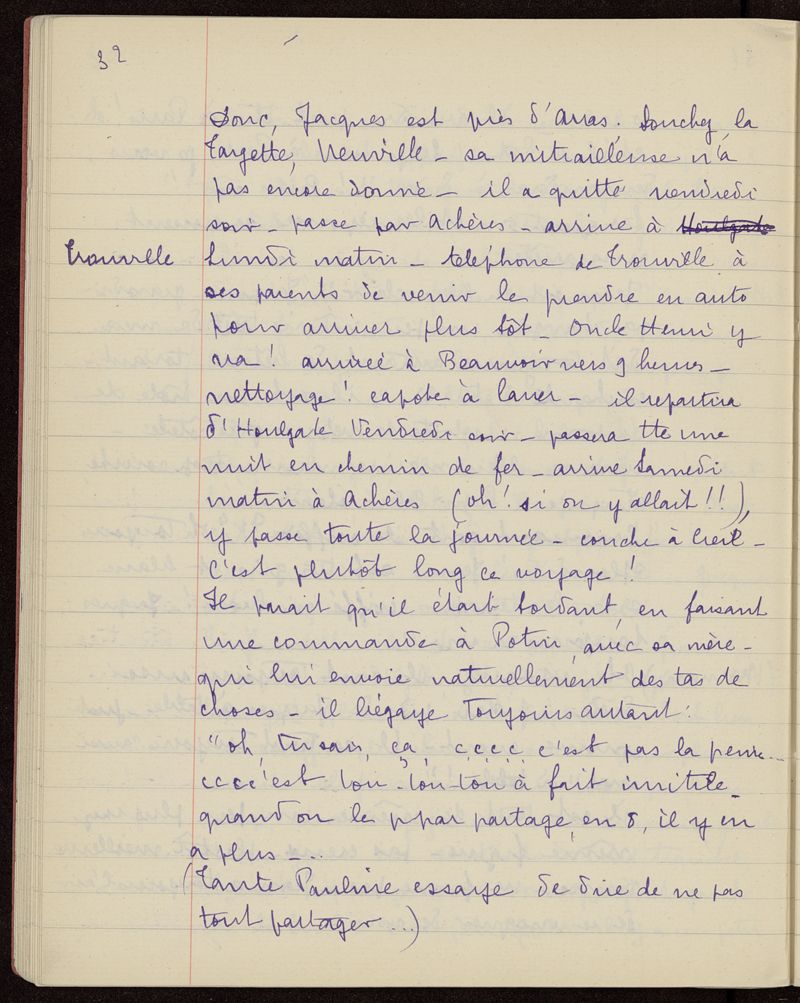 32
Donc, Jacques est près d'Arras. Souchez, la
Targette, Neuville - sa mitrailleuse n'a
pas encore donné - il a quitté vendredi
soir - passe par Achères - arrive à Houlgate
Trouville
Lundi matin - téléphone de Trouville à
ses parents de venir le prendre en auto
pour arriver plus tôt - Oncle Henri y
va! arrivée à Beauvoir vers 9 heures -
nettoyage! capote à laver - il repartira
d'Houlgate Vendredi soir - passera tte une
nuit en chemin de fer - arrive Samedi
matin à Achères (oh! si on y allait!!),
y passe toute la journée - couche à Creil -
c'est plutôt long ce voyage!
Il parait qu'il était tordant, en faisant
une commande à Potin, avec sa mère -
qui lui envoie naturellement des tas de
choses - il bégaye toujours autant:
"oh, tu sais, ça, c c c c c'est pas la peine...
c c c c'est tou-tou-tou à fait inutile -
quand on le p par partage, en 8, il y en
a plus - ...
(Tante Pauline essaye de dire de ne pas
tout partager ...)